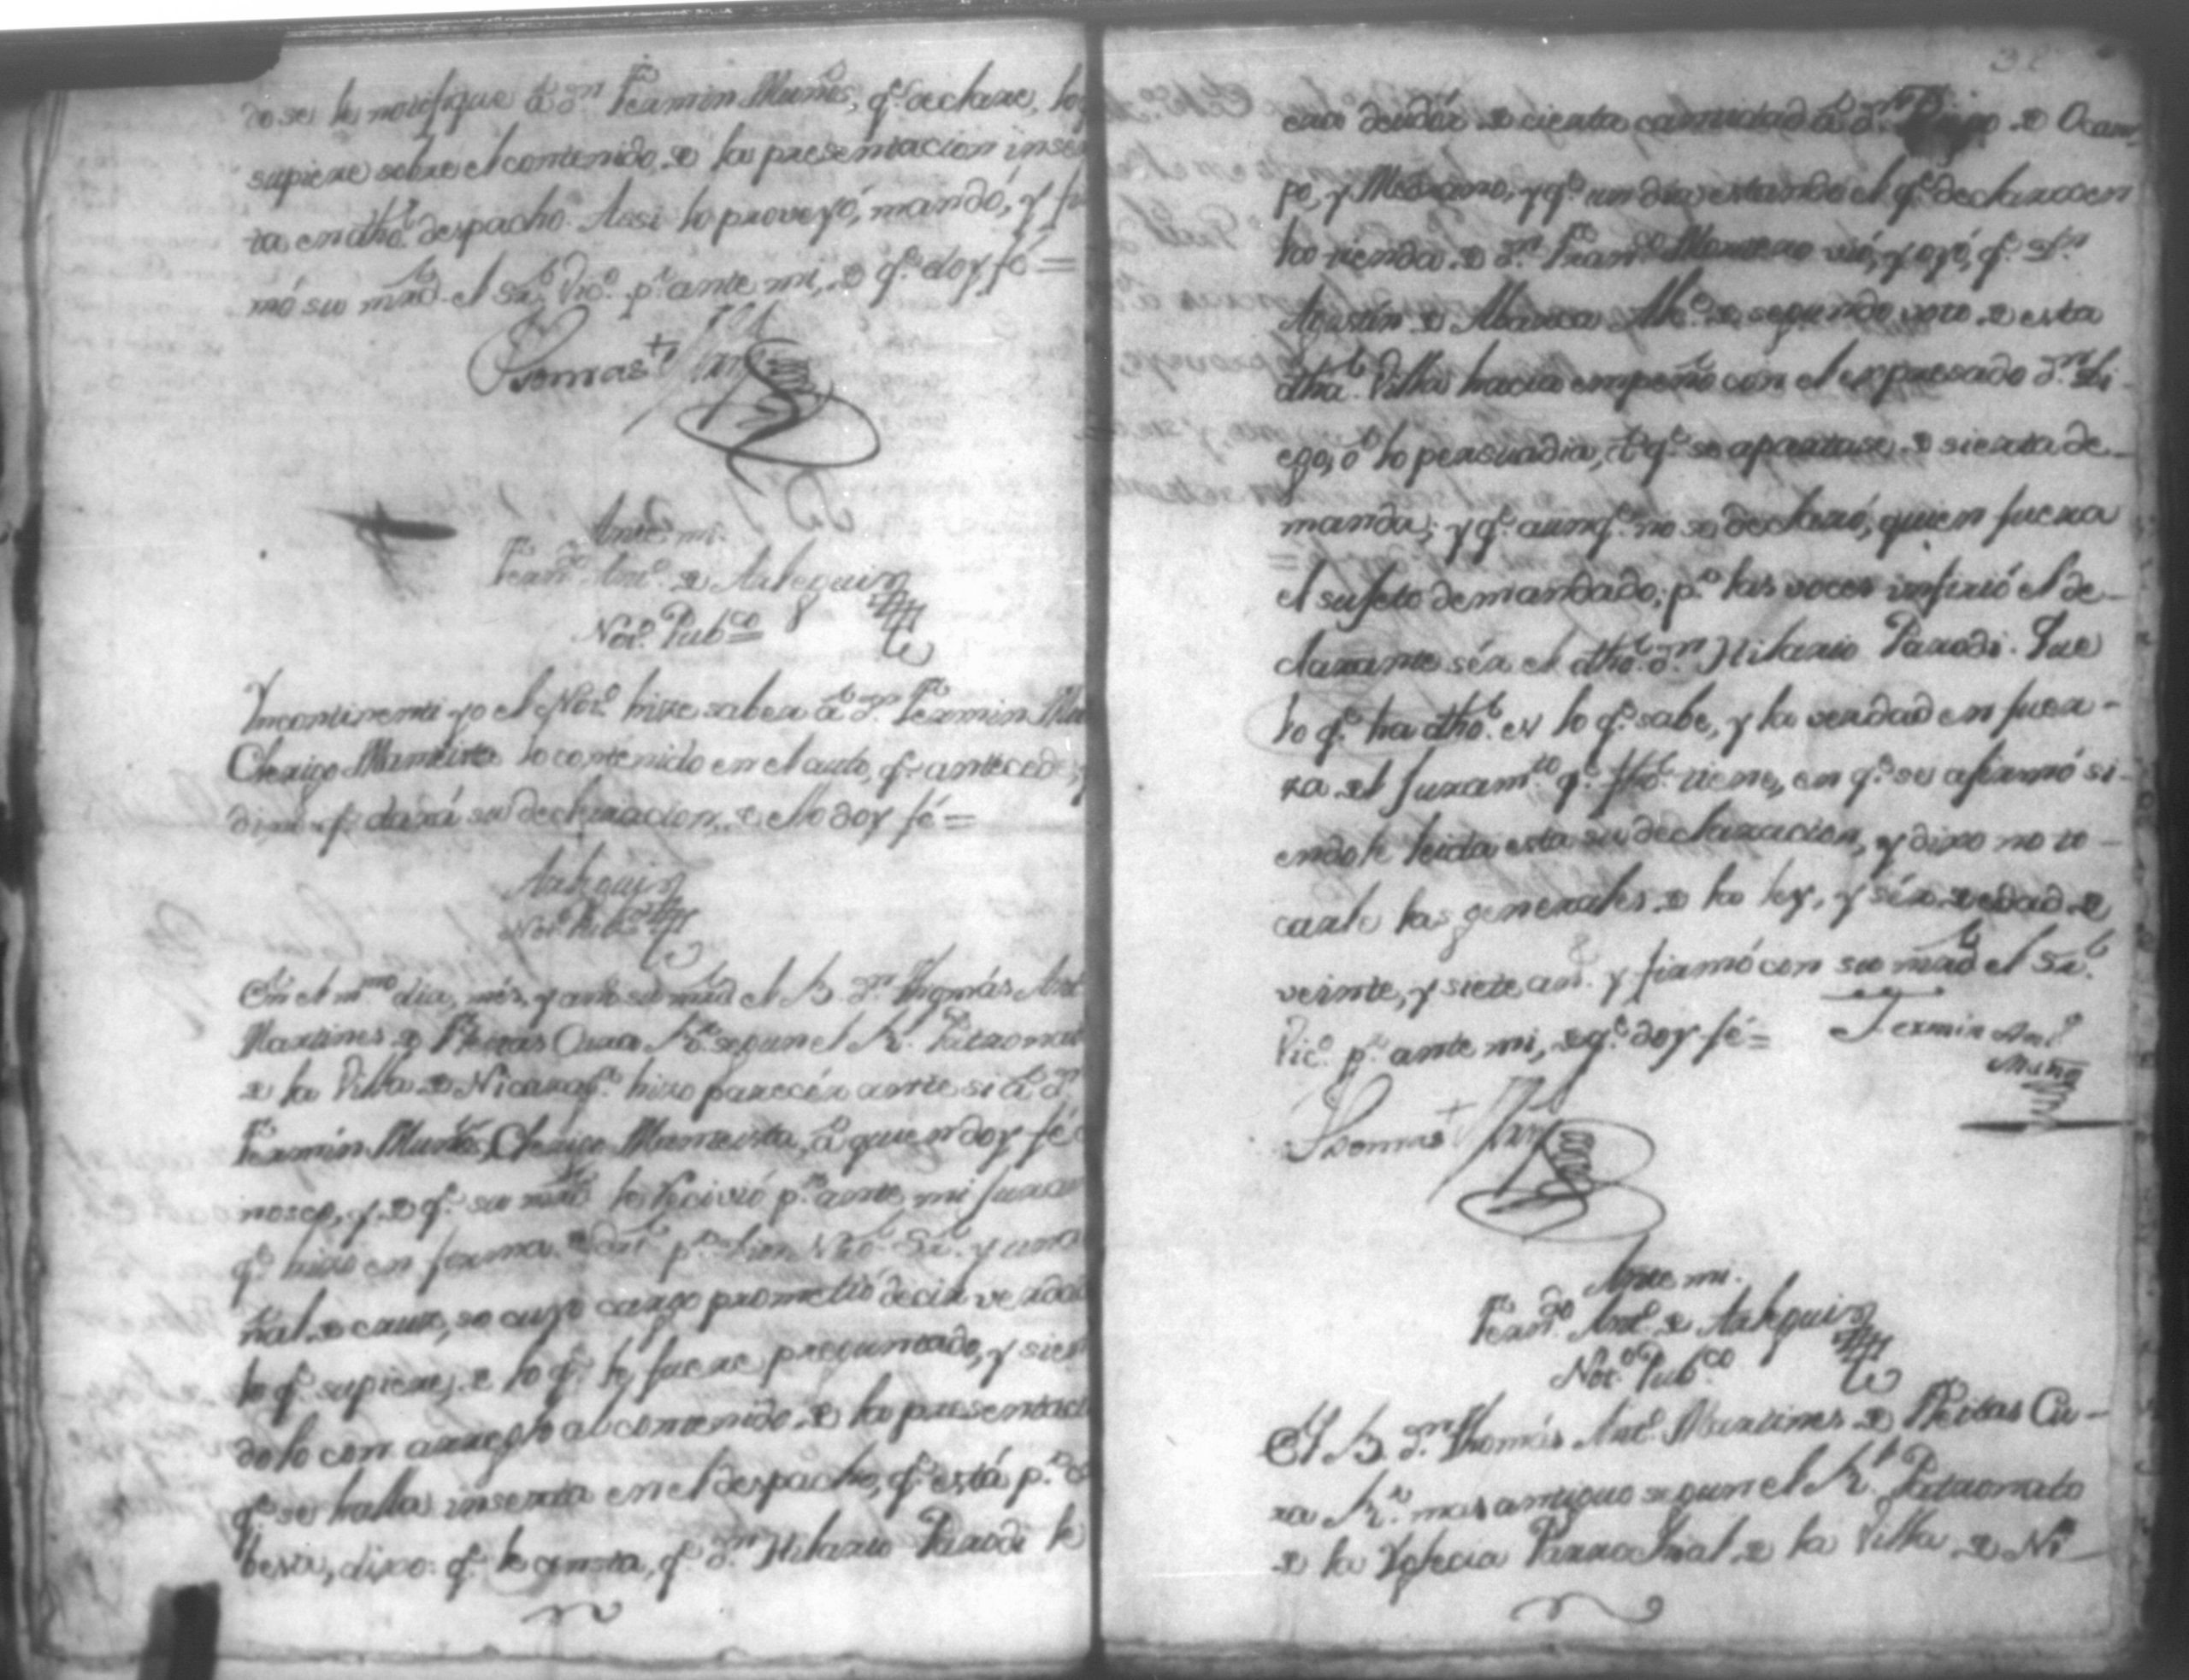 dose le notifique â Dn. Fermin Muños, qe. declare, lo
supiere sobre el contenido de la presentacion inser
ta en dho. despacho. Assi lo proveyó, mandó, y fir
mó su mrd. el Sr. Vico. pr. ante mi, de qe. doy fé =
Thomas Mrnz
Ante mi
Fern.do Anto. de Arlegui
Noto. Pubco.
Yncontinenti yo el Noto. hize saber â Dn. Fermin Mu
Clerigo Manteista lo contenido en el auto, qe. antecede, y
dixo qe. dará su declaracion, de ello doy fé =
Arlegui
Noto. Pubco.
En el mmo. dia, mes, y año su mrd. el B. Dn. Thomás Anto.
Martines de Pheitas Cura Ro. segun el Rl. Patronat
de la Villa de Nicaragª. hizo parecér ante si â Dn.
Fermin Muños, Clerigo Manteista, â quien doy fé co
nosco, y de qe. su mrd. le recivió pr. ante mi juram
qe. hizo en forma de dro. pr. Dios Nro. Sr. y una
señal de cruz, so cuyo cargo prometió decir verdad
lo qe. supiere, de lo qe. le fuere preguntado, y sien
dolo con arreglo al contenido de la presentaci
qe. se halla inserta en el despacho, qe. está pr. ca
besa, dixo: qe. le consta, qe. Dn. Hilario Parodi le
era deudór de cierta cantidad â Dn. Diego de Ocam-
po, y Medrano, y qe. un dia estando el qe. declara en
la tienda de Dn. Frano. Moreno vió, y oyó, qe. Dn.
Agustin de Abarca Alce. de segundo voto de esta
dha. Villa hacia empeño con el expresado Dn. Di-
ego, ô lo persuadia, â qe. se apartase de sierta de-
manda; y qe. aunqe. no se declaró, quien fuera
el sujeto demandado, pr. las voces infirió el de-
clarante sér el dho. Dn. Hilario Parodi. Que
lo qe. ha dho. es lo qe. sabe, y la verdad en fuer-
za del juramto. qe. fho. tiene, en qe. se afirmó si-
endole leida esta su declaracion, y dixo no to-
carle las generales de la ley, y sér de edad de
veinte, y siete as. y firmó con su mrd. el Sr.
Vico. pr. ante mi, de qe. doy fé =
Fermin Anto.
Muños
Thomas Mrnz
Ante mi.
Fern.do Anto. de Arlegui
Noto. Pubco.
El B. Dn. Thomás Anto. Martines de Pheitas Cu-
ra Ro. mas antiguo segun el Rl. Patronato
de la Yglecia Parrochial de la Villa de Ni-